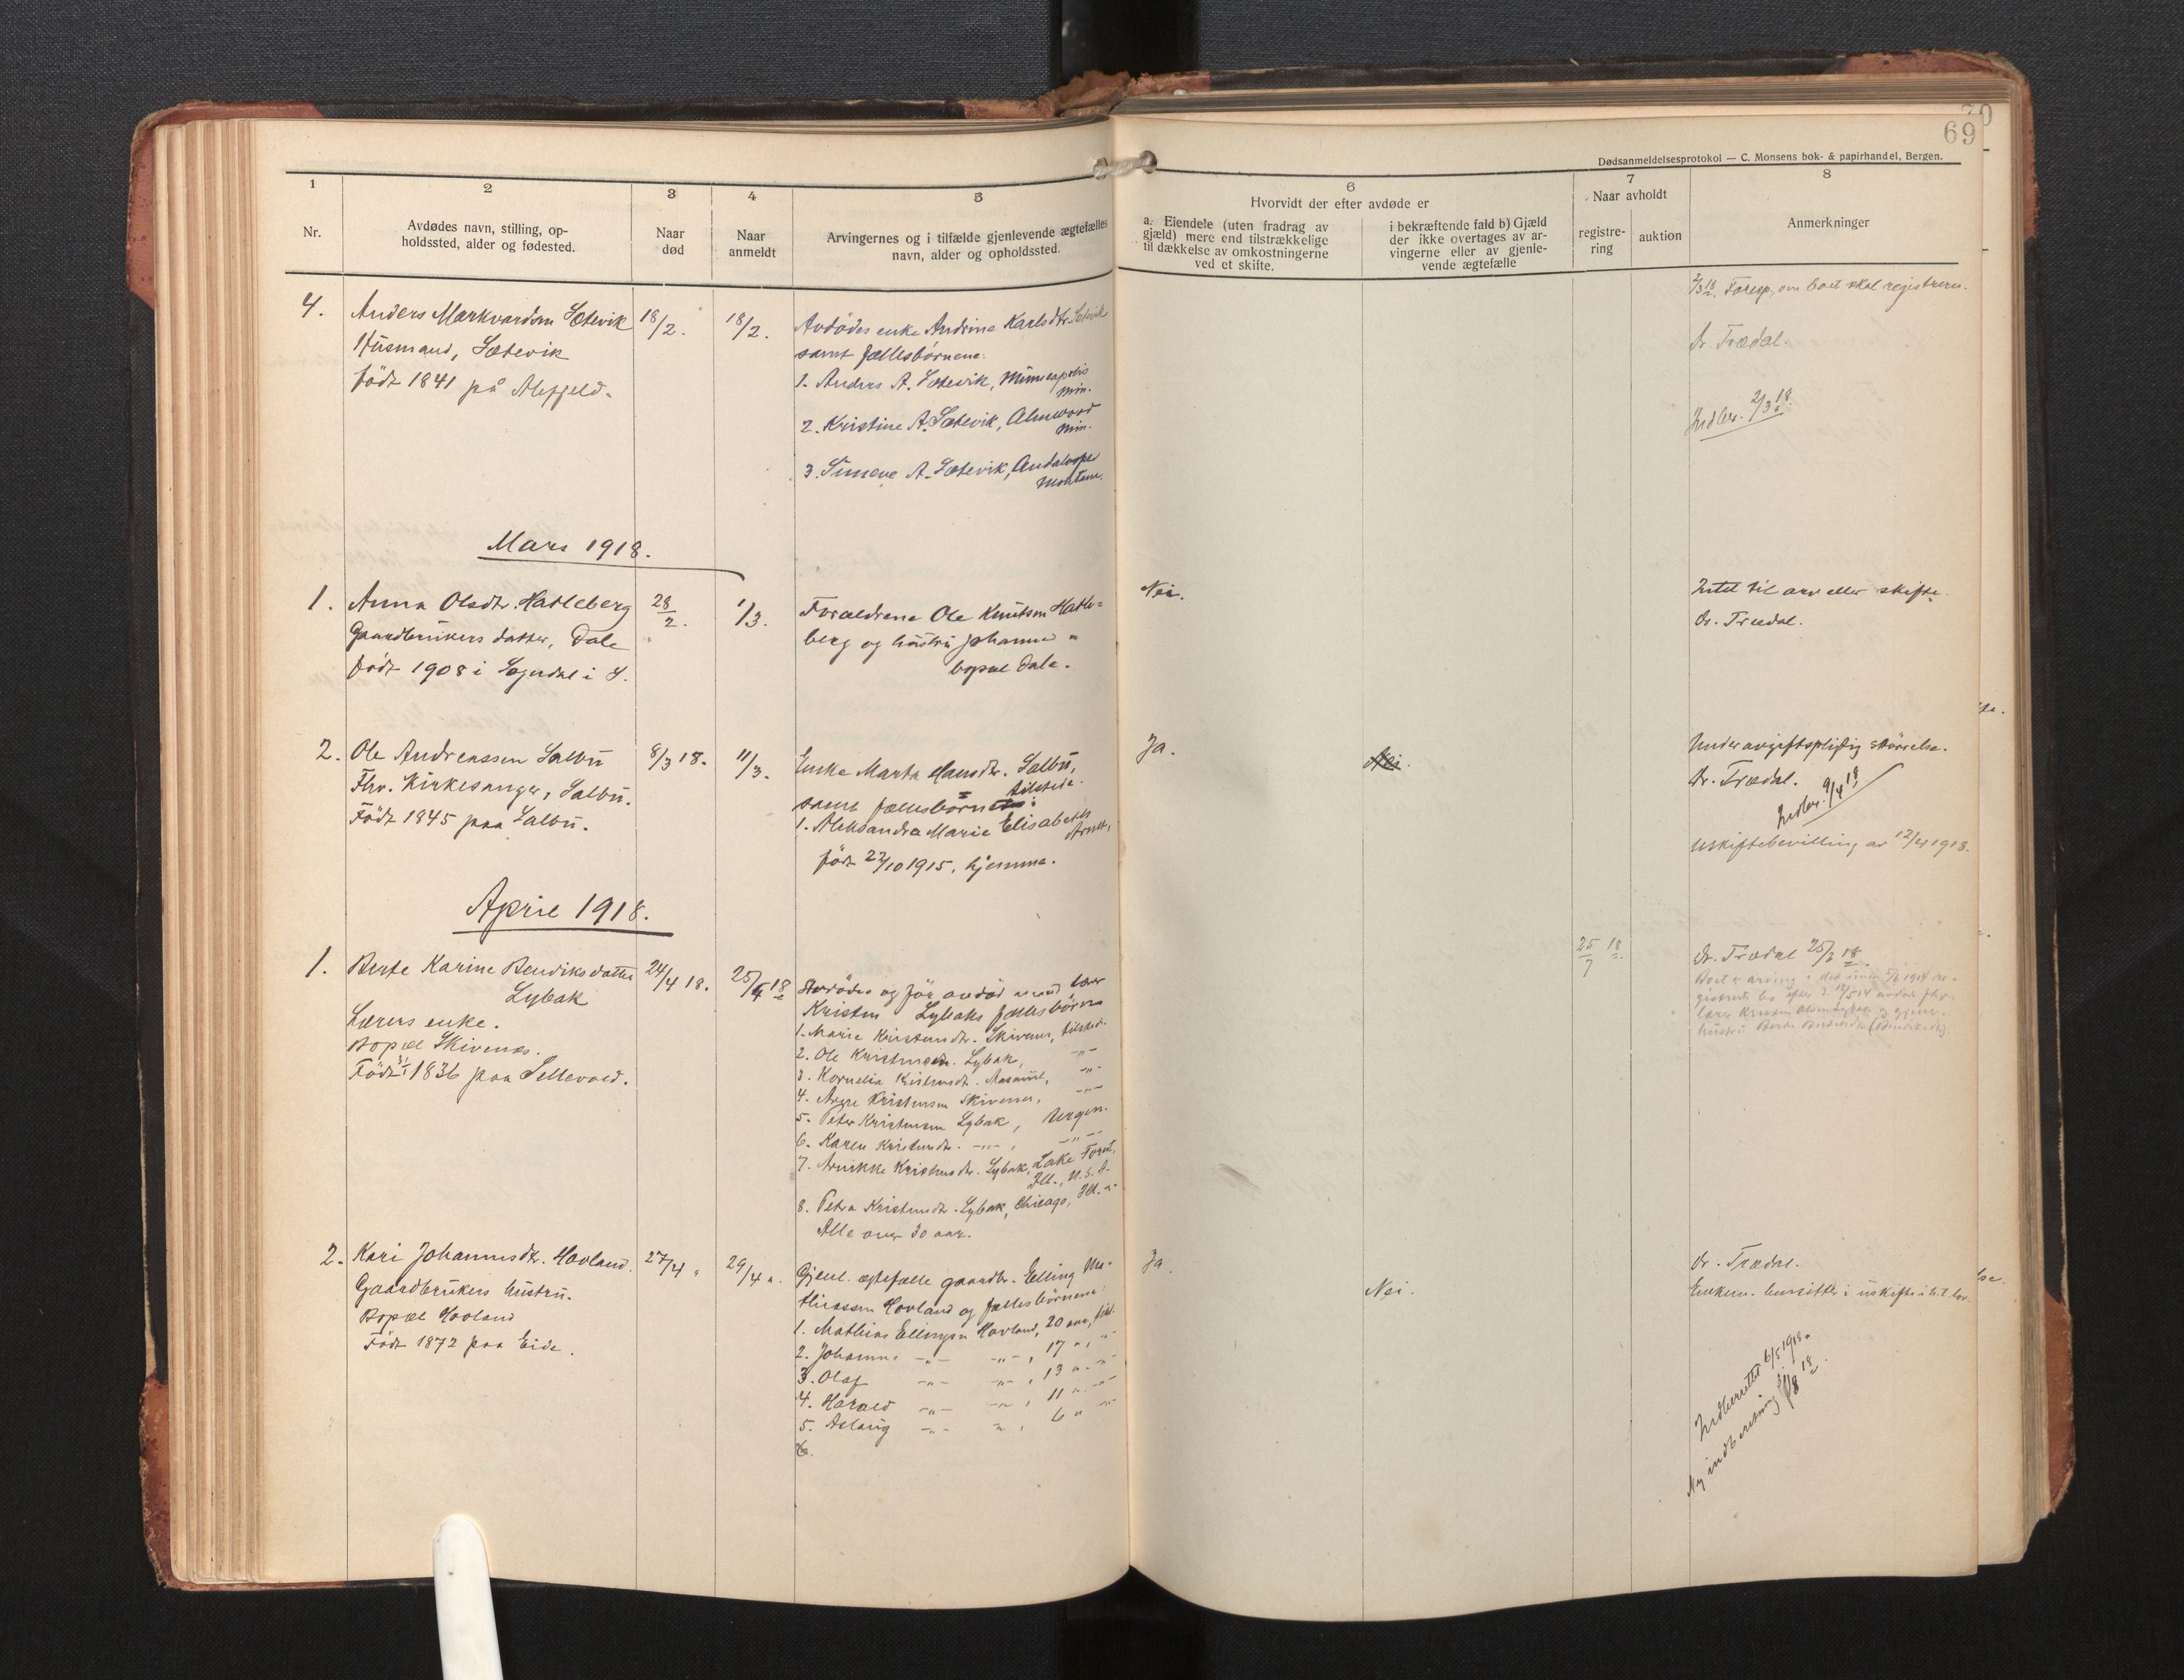 70
69
Dødsanmeldelsesprotokol — C. Monsens bok- & papirhandel, Bergen.
1
2
3
4
5
6
7
8
Nr.
Avdødes navn, stilling, op-
holdssted, alder og fødested.
Naar
død
Naar
anmeldt
Arvingernes og i tilfælde gjenlevende ægtefælles
navn, alder og opholdssted.
Hvorvidt der efter avdøde er
a. Eiendele (uten fradrag av
gjæld) mere end tilstrækkelige
til dækkelse av omkostningerne
ved et skifte.
i bekræftende fald b) Gjæld
der ikke overtages av ar-
vingerne eller av gjenle-
vende ægtefælle
Naar avholdt
registre-
ring
auktion
Anmerkninger
4.
Anders Markvardsen Sætevik
Husmand, Sætevik
født 1841 på Alsfjeld.
18/2.
18/2.
Avdødes enke Andrine Karlsdtr. Sætevik
samt fællesbørnene:
1. Anders A. Sætevik, Mineapolis
Min.
2. Kristine A. Sætevik, Almwood
Min.
3. A. Sætevik,
Montana.
Foresp. om boet skal registreres.
Dr. Trædal.
Indber. 2/3 18.
Mars 1918.
1.
Anna Olsdtr. Hatleberg
Gaardbrukers datter, Dale
født 1908 i Sogndal i S.
28/2.
1/3.
Forældrene Ole Knutsen Hatle-
berg og hustru Johanne "
bopæl Dale.
Nei.
Intet til arv eller skifte.
Dr. Trædal.
2.
Ole Andreassen Salbu
Fhv. Kirkesanger, Salbu.
Født 1845 paa Salbu.
8/3 18.
11/3.
Enke Marta Hansdtr. Salbu,
tilstede.
samt fællesbarn:
1. Aleksandra Marie Elisabeth
født 22/10 1915, hjemme.
Ja.
Nei.
Under avgiftspligtig størrelse.
Dr. Trædal.
Indber. 9/4 18
Uskiftebevilling av 12/4 1918.
April 1918.
1.
Berte Karine Bendiksdatter
Lybak
Lærers enke.
Bopæl Skivenes.
Født 31/1 1836 paa Sellevold.
24/4 18.
25/4 18
Avdødes og før avdød mand lærer
Kristen Lybaks fællesbørn
1. Marie Kristensdtr. Skivenes, tilsted.
2. Ole Kristensen Lybak, -"-
3. Kornelia Kristensdtr. -"-
4. Kristensen Skivenes, -"-
5. Peter Kristensen Lybak, Bergen.
6. Karen Kristensdtr. -"-, -"-
7. Kristensdtr. Lybak, Lake Forest,
Ill., U.S.A.
8. Petra Kristensdtr. Lybak, Chicago, Ill. -"-
Alle over 30 aar.
25/7 18
Dr. Trædal 25/7 18
2.
Kari Johannesdtr. Hovland.
Gaardbrukers hustru.
Bopæl Hovland
Født 1872 paa Eide.
27/4 "
29/4 ".
Gjenl. ægtefælle gaardbr. Elling Ma-
thiassen Hovland og fællesbørnene:
1. Mathias Ellingsen Hovland, 20 aar,
2. Johannes -"- -"-, 17 "
3. Olaf -"- -"-, 13 "
4. Harald -"- -"-, 11 "
5. Aslaug -"- ", 6 "
6.
Ja
Nei.
Dr. Trædal.
Enkem. hensitter i uskifte i h.t. lov.
Indberettet 6/5 1918.
Ny indberetning 18.